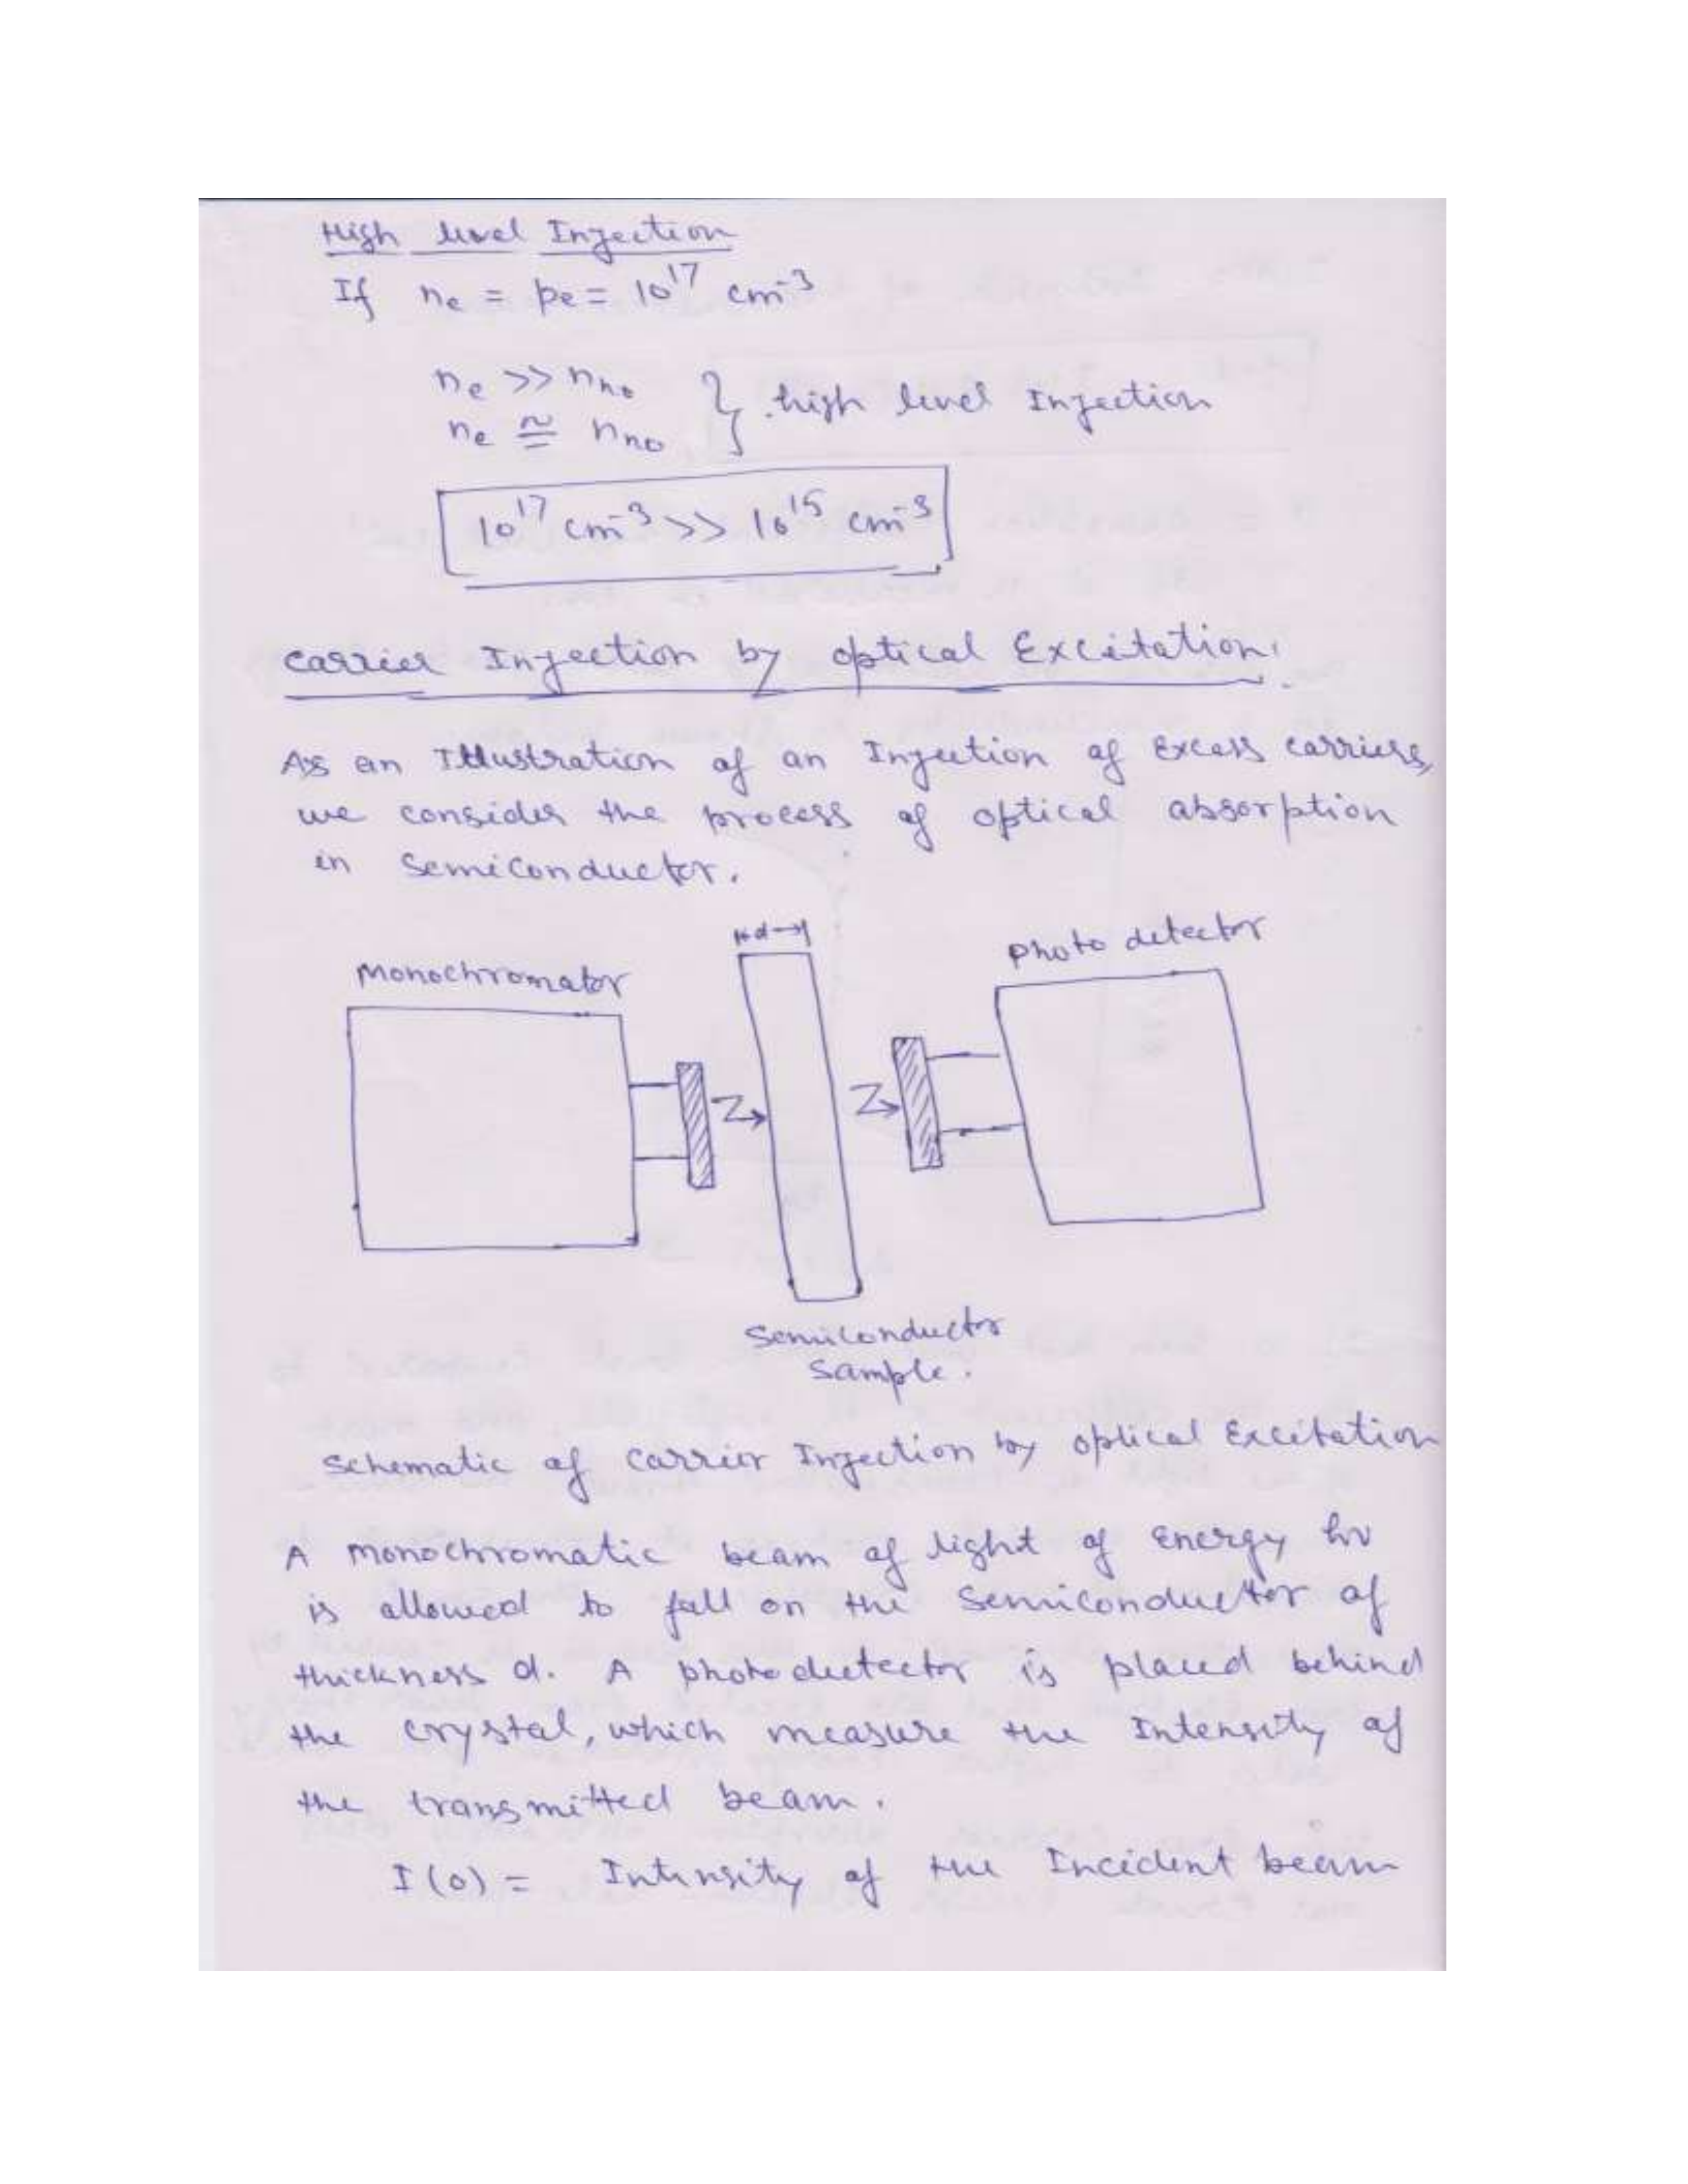 High level Injection
If ne = pe = 10^17 cm^-3
ne >> nno
ne ≅ nno } high level Injection
10^17 cm^-3 >> 10^15 cm^-3
Carrier Injection by optical Excitation.
As an Illustration of an Injection of Excess carriers,
we consider the process of optical absorption
in semiconductor.
d
Monochromator
Photo detector
Semiconductor
Sample.
Schematic of carrier Injection by optical Excitation
A monochromatic beam of light of energy hν
is allowed to fall on the semiconductor of
thickness d. A photodetector is placed behind
the crystal, which measure the Intensity of
the transmitted beam.
I(0) = Intensity of the Incident beam